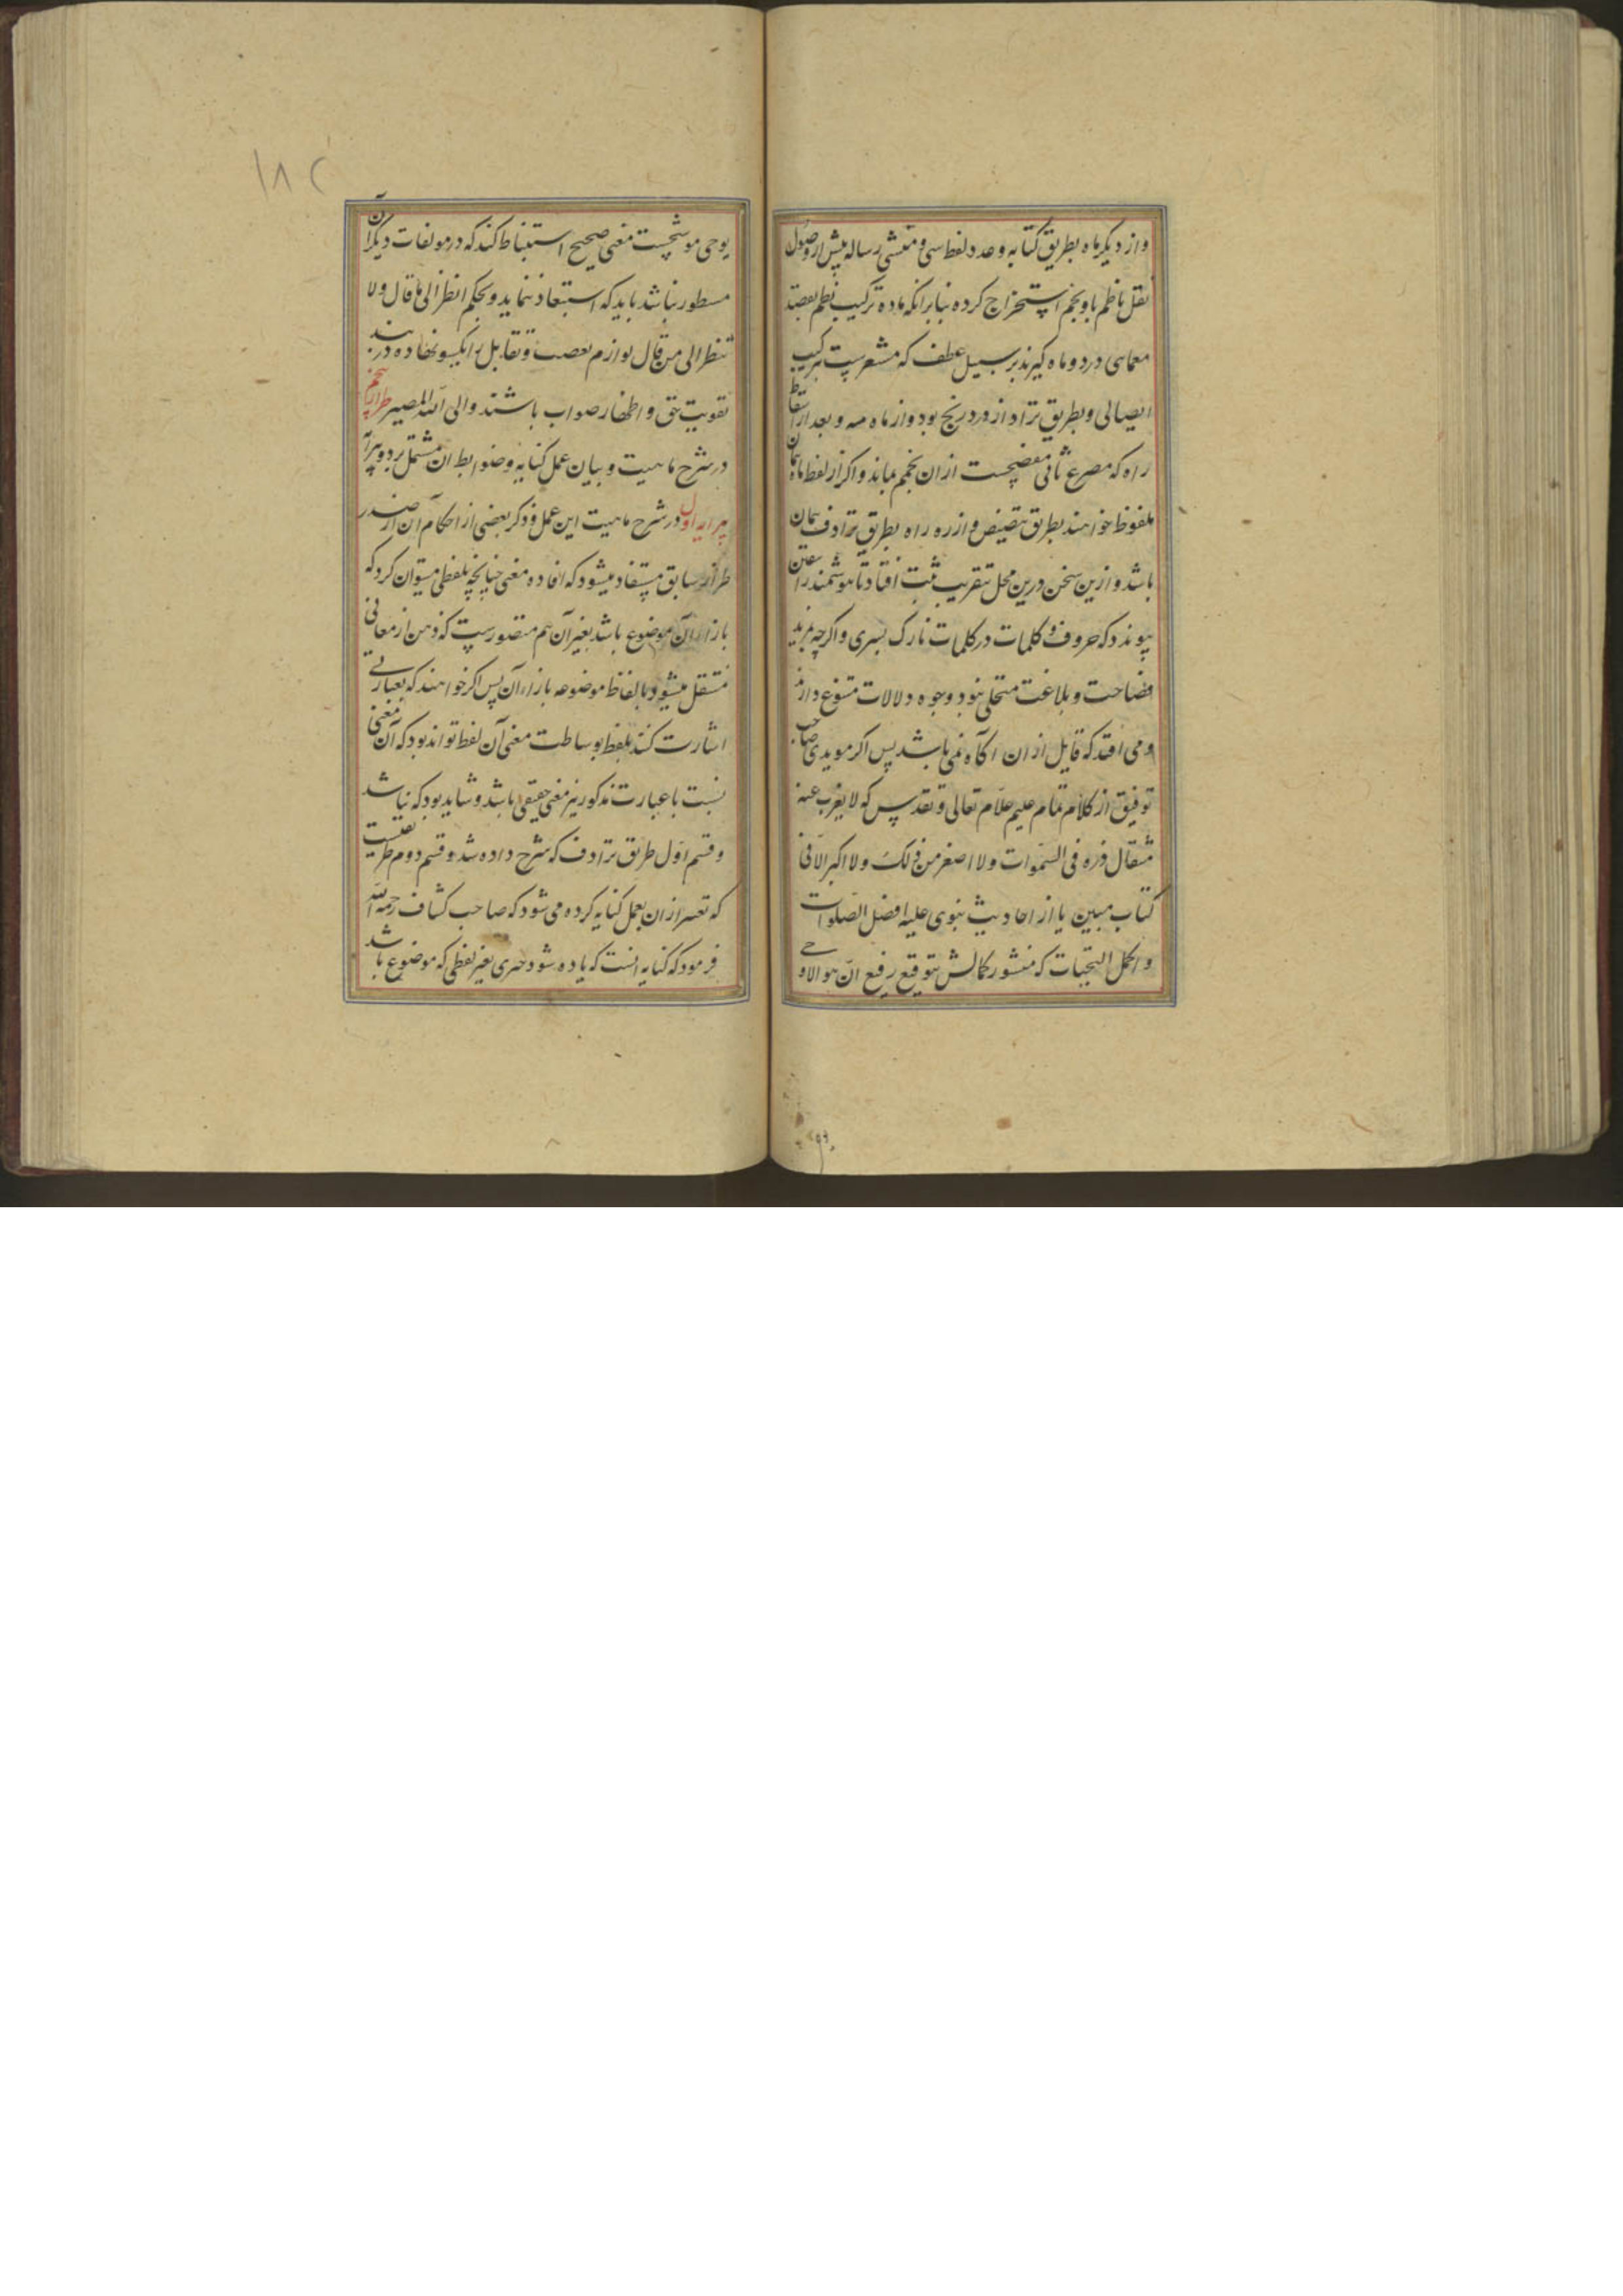 و از دیگر ماه بطریق کتابه و عدد لفظ سی و منشی رساله پیش از وصول
نقل ناظم با و بنجم استخراج کرده بنابر انکه ماده ترکیب نظم بقصد
معمای درد و ماه گیرند بر سبیل عطف که مشعرست بترکیب
اتصالی و بطریق ترادف از درد رنج بود و از ماه مه و بعد از اسقاط
راه که مصرع ثانی مفصحست از ان بنجم بماند و اکر از لفظ ماه همان
ملفوظ خواهند بطریق تنصیص و از ره راه بطریق ترادف همان
باشد و ازین سخن درین محل بتقریب ثبت افتاد تا هوشمند را یقین
پیوندد که حروف و کلمات در کلمات تارک بسری و اکرچه بمزید
فصاحت و بلاغت متحلی بود وجوه دلالات متنوع دارد
و می افتد که قایل از ان اکاه نمی باشد پس اکر مویدی صاحب
توفیق از کلام تمام علیم علام تعالی و تقدس که لا یعزب عنه
مثقال ذره فی السموات ولا اصغر من ذلک ولا اکبر الا فی
کتاب مبین یا از احادیث نبوی علیه افضل الصلوات
و اکمل التحیات که منشور کمالش بتوقیع رفیع ان هو الا وحی
یوحی موشحست معنی صحیح استنباط کند که در مولفات دیکران
مسطور نباشد باید که استبعاد ننماید و بحکم انظر الی ما قال ولا
تنظر الی من قال لوازم تعصب و تقابل را بیکسو نهاده در بند
تقویت حق و اظهار صواب باشند و الی الله المصیر طراز پنجم
در شرح ماهیت و بیان عمل کنایه و ضوابط ان مشتمل بر دو پیرایه
پیرایه اول در شرح ماهیت این عمل و ذکر بعضی از احکام آن از صدر
طراز سابق مستفاد میشود که افاده معنی چنانچه بلفظی میتوان کرد که
بازاء آن موضوع باشد بغیر آن هم متصورست که ذهن از معانی
منتقل میشود بالفاظ موضوعه بازاء آن پس اکر خواهند که بعبارتی
اشارت کنند بلفظ بوساطت معنی آن لفظ تواند بود که آن معنی
نسبت با عبارت مذکور نیز معنی حقیقی باشد و شاید بود که نباشد
و قسم اول طریق ترادف که شرح داده شد و قسم دوم طریقیست
که تعبیر از ان بعمل کنایه کرده می شود که صاحب کشاف رحمه الله
فرمود که کنایه انست که یاده شود چیزی بغیر لفظی که موضوع باشد
۱۸۲